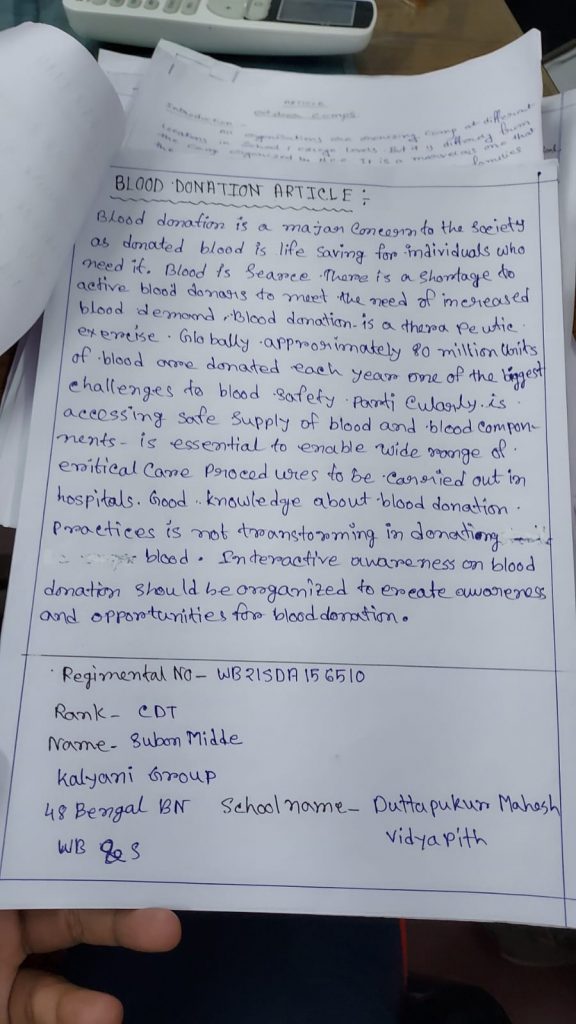 ARTICLE
outdoor camps
Introduction -
BLOOD DONATION ARTICLE :
Blood donation is a majan Concern to the Society
as donated blood is life saving for individuals who
need it. Blood is Searce. There is a Shortage do
active blood donars to meet the need of increased
blood demand. Blood donation- is a thera pe utic
exercise. Glo bally approximately 80 million Units
of blood are donated each year one of the biggest
challenges to blood safety parti cularly. is
accessing safe supply of blood and blood compon-
nents- is essential to enable wide range of
critical Care Proced ures to be carried out in
hospitals. Good knowledge about blood donation.
Practices is not transtorming in donationg
blood. Interactive awareness on blood
donation should be organized to create awareness
and opportunities for blood donation.
Regimental No- WB21SDA156510
Rank- CDT
Name- Subon Midde
Kalyani Group
48 Bengal BN School name- Duttapukur Mahesh
Vidyapith
WB & S